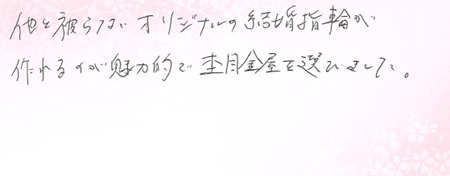 他と被らないオリジナルの結婚指輪が
作れるのが魅力的で杢目金屋を選びました。